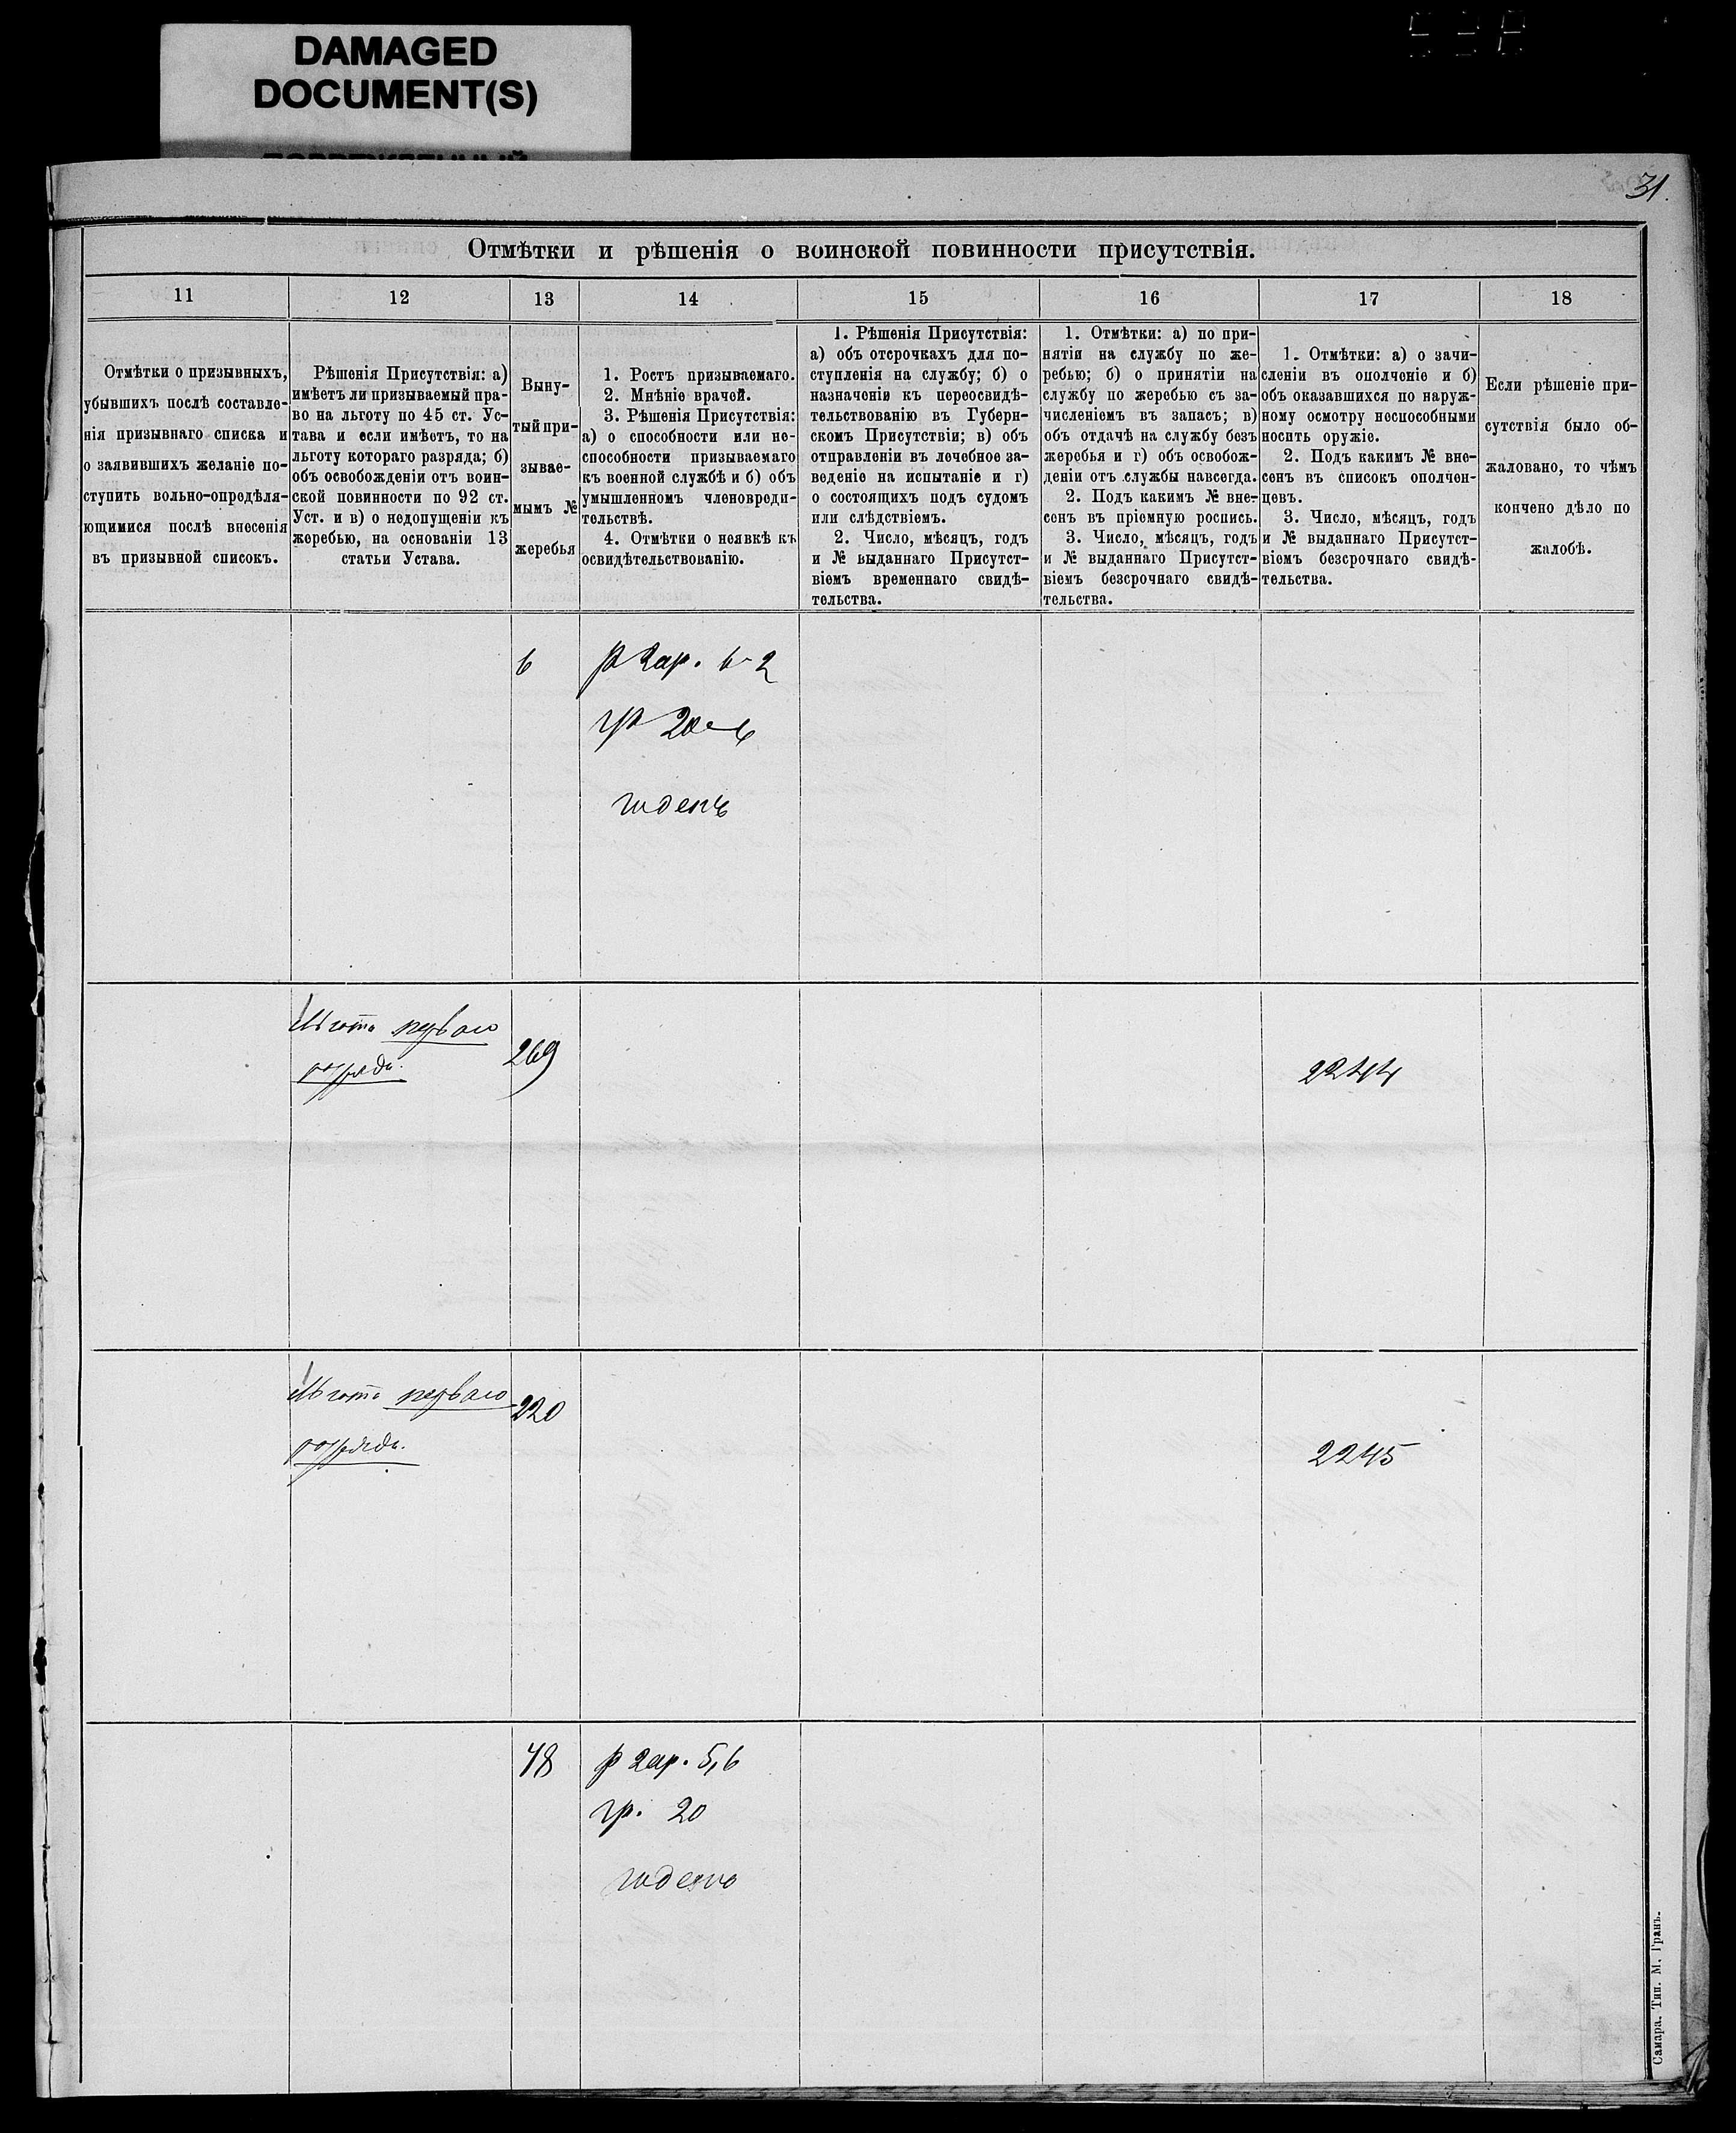 DAMAGED
DOCUMENT(S)
31.
Отмѣтки и рѣшенія о воинской повинности присутствія.
11 12 13 14 15 16 17 18
Отмѣтки о призывныхъ,
убывшихъ послѣ составле-
нія призывнаго списка и
о заявившихъ желаніе по-
ступить вольно-опредѣля-
ющимися послѣ внесенія
въ призывной списокъ.
Рѣшенія Присутствія: а)
имѣетъ ли призываемый пра-
во на льготу по 45 ст. Ус-
тава и если имѣетъ, то на
льготу котораго разряда; б)
объ освобожденіи отъ воин-
ской повинности по 92 ст.
Уст. и в) о недопущеніи къ
жеребью, на основаніи 13
статьи Устава.
Выну-
тый при-
зывае-
мымъ №
жеребья
1. Ростъ призываемаго.
2. Мнѣніе врачей.
3. Рѣшенія Присутствія:
а) о способности или не-
способности призываемаго
къ военной службѣ и б) объ
умышленномъ членовреди-
тельствѣ.
4. Отмѣтки о неявкѣ къ
освидѣтельствованію.
1. Рѣшенія Присутствія:
а) объ отсрочкахъ для по-
ступленія на службу; б) о
назначеніи къ переосвидѣ-
тельствованію въ Губерн-
скомъ Присутствіи; в) объ
отправленіи въ лечебное за-
веденіе на испытаніе и г)
о состоящихъ подъ судомъ
или слѣдствіемъ.
2. Число, мѣсяцъ, годъ
и № выданнаго Присутст-
віемъ временнаго свидѣ-
тельства.
1. Отмѣтки: а) по при-
нятіи на службу по же-
ребью; б) о принятіи на
службу по жеребью съ за-
численіемъ въ запасъ; в)
объ отдачѣ на службу безъ
жеребья и г) объ освобож-
деніи отъ службы навсегда.
2. Подъ какимъ № вне-
сенъ въ пріемную роспись.
3. Число, мѣсяцъ, годъ
и № выданнаго Присутст-
віемъ безсрочнаго свидѣ-
тельства.
1. Отмѣтки: а) о зачи-
сленіи въ ополченіе и б)
объ оказавшихся по наруж-
ному осмотру неспособными
носить оружіе.
2. Подъ какимъ № вне-
сенъ въ списокъ ополчен-
цевъ.
3. Число, мѣсяцъ, годъ
и № выданнаго Присутст-
віемъ безсрочнаго свидѣ-
тельства.
Если рѣшеніе при-
сутствія было об-
жаловано, то чѣмъ
кончено дѣло по
жалобѣ.
6 р 2 ар. 6-2
гр
годенъ
Льгота перваго
разряда.
269
2244
Льгота перваго
разряда.
220
2245
48 р 2 ар. 5,6
гр. 20
годенъ
Самара. Тип. М. Гранъ.